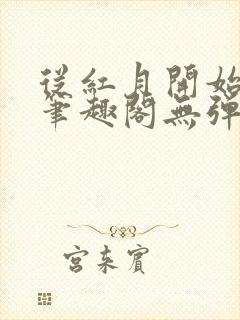 從紅月開始
筆趣閣無彈
宮來賓